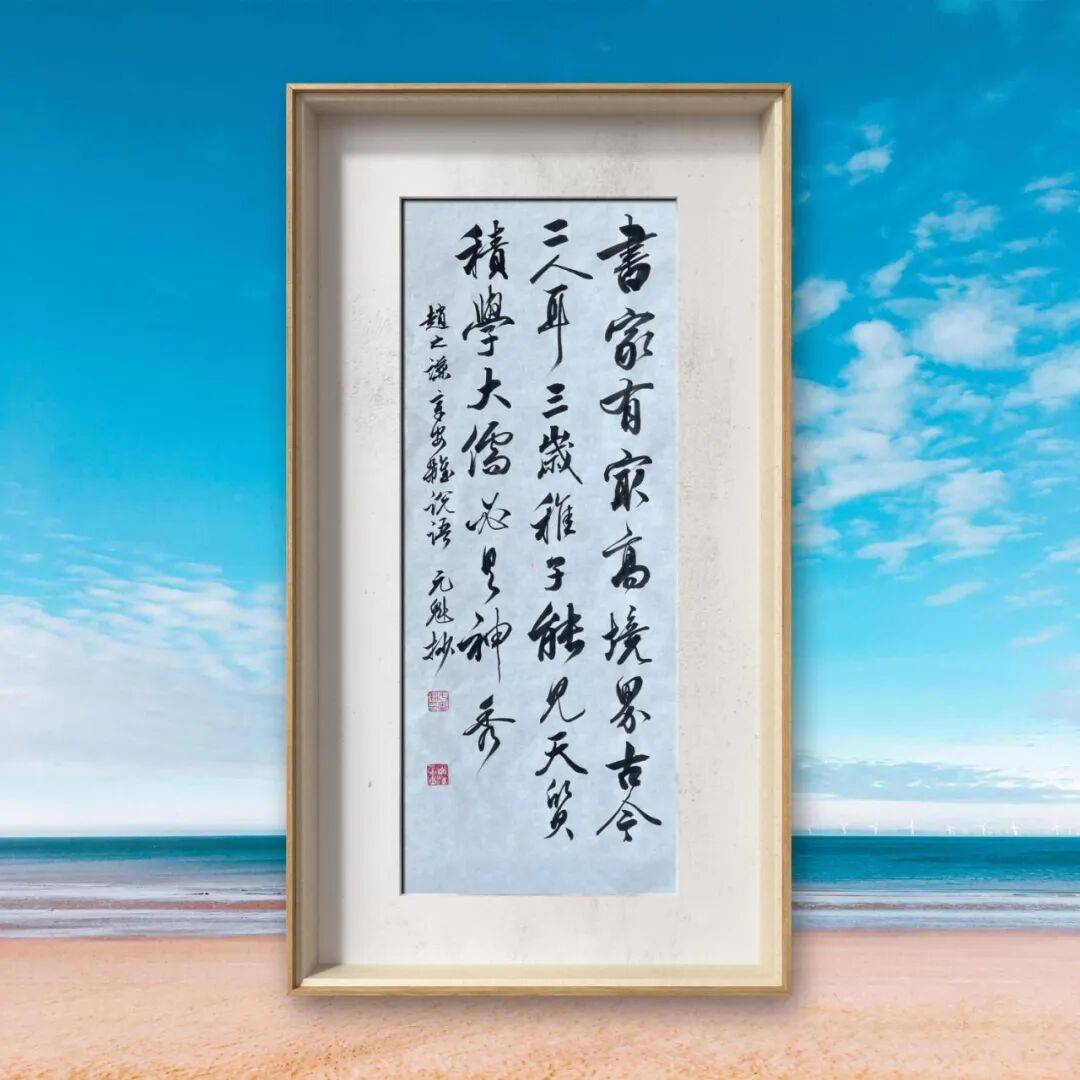 書家有最高境界古今
二人耳三歲稚子能見天質
積學大儒必具神秀
趙之謙章安雜説語 元魁抄